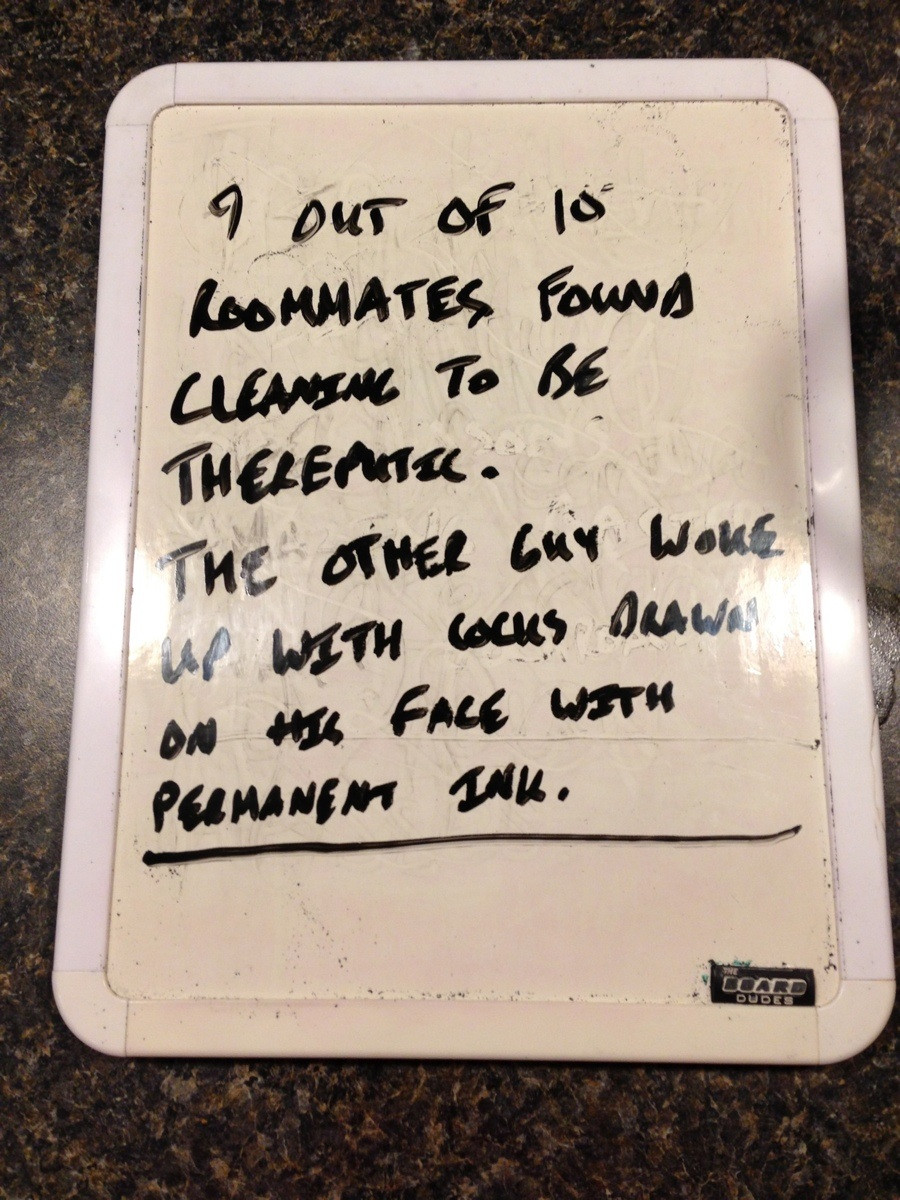 9 OUT OF 10
ROOMMATES FOUND
CLEANING TO BE
THEREPUTIC.
THE OTHER GUY WOKE
UP WITH COCKS DRAWN
ON HIS FACE WITH
PERMANENT INK.
THE
BOARD
DUDES